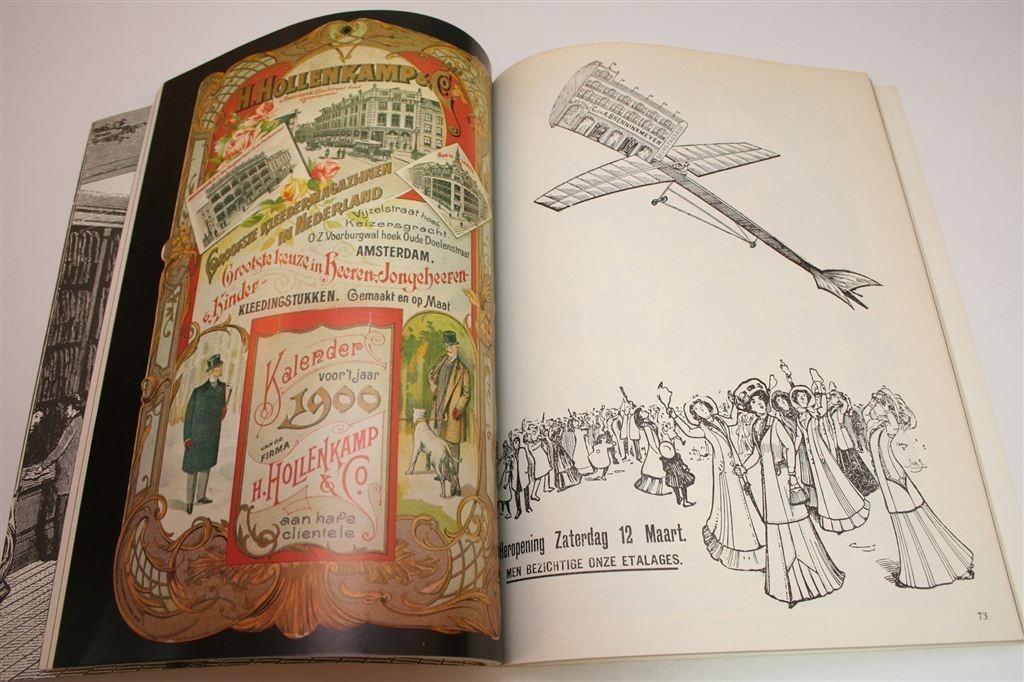 H. HOLLENKAMP & Co.
GROOTSTE KLEEDERMAGAZIJNEN
IN NEDERLAND
Vijzelstraat hoek
Keizersgracht.
O.Z. Voorburgwal hoek Oude Doelenstraat
AMSTERDAM.
Grootste keuze in Heeren-, Jongeheeren-
& Kinder-
KLEEDINGSTUKKEN. Gemaakt en op Maat
Kalender
voor't jaar
1900
VAN DE
FIRMA
H. HOLLENKAMP
& Co.
aan hare
clientele
C. & A. BRENNINKMEYER
Heropening Zaterdag 12 Maart.
MEN BEZICHTIGE ONZE ETALAGES.
73